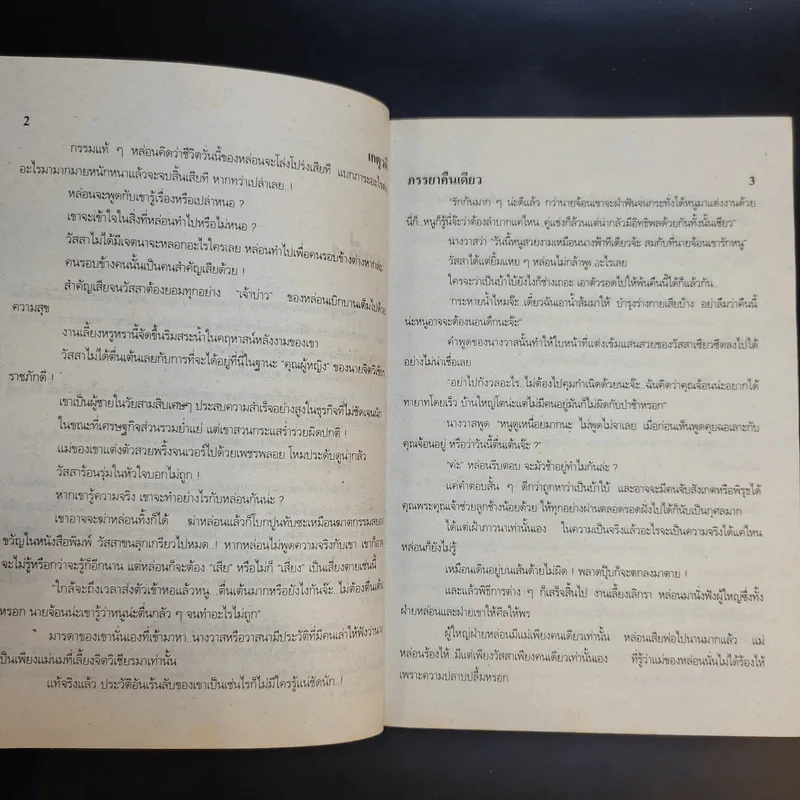 2
เกตุวดี
กรรมแท้ ๆ หล่อนคิดว่าชีวิตวันนี้ของหล่อนจะโล่งโปร่งเสียที แบกภาระอะไร
อะไรมามากมายหนักหนาแล้วจะจบสิ้นเสียที หากทว่าเปล่าเลย..!
หล่อนจะพูดกับเขารู้เรื่องหรือเปล่าหนอ ?
เขาจะเข้าใจในสิ่งที่หล่อนทำไปหรือไม่หนอ ?
วัสสาไม่ได้มีเจตนาจะหลอกอะไรใครเลย หล่อนทำไปเพื่อคนรอบข้างต่างหากล่ะ
คนรอบข้างคนนั้นเป็นคนสำคัญเสียด้วย !
สำคัญเสียจนวัสสาต้องยอมทุกอย่าง “เจ้าบ่าว” ของหล่อนเบิกบานเต็มไปด้วย
ความสุข
งานเลี้ยงหรูหรานี้จัดขึ้นริมสระน้ำในคฤหาสน์หลังงามของเขา
วัสสาไม่ได้ตื่นเต้นเลยกับการที่จะได้อยู่ที่นี่ในฐานะ “คุณผู้หญิง” ของนายจิตวิเชียร
ราชภักดี !
เขาเป็นผู้ชายในวัยสามสิบเศษๆ ประสบความสำเร็จอย่างสูงในธุรกิจที่ไม่ชัดเจนนัก
ในขณะที่เศรษฐกิจส่วนรวมย่ำแย่ แต่เขาสวนกระแสร่ำรวยผิดปกติ !
แม่ของเขาแต่งตัวสวยพริ้งจนเวอร์ไปด้วยเพชรพลอย โหมประดับดูน่ากลัว
วัสสาร้อนรุ่มในหัวใจบอกไม่ถูก !
หากเขารู้ความจริง เขาจะทำอย่างไรกับหล่อนกันนะ ?
เขาอาจจะฆ่าหล่อนทิ้งก็ได้ ฆ่าหล่อนแล้วก็โบกปูนทับซะเหมือนฆาตกรรมสยอง
ขวัญในหนังสือพิมพ์ วัสสาขนลุกเกรียวไปหมด..! หากหล่อนไม่พูดความจริงกับเขา เขาก็อาจ
จะไม่รู้หรือกว่าจะรู้ก็อีกนาน แต่หล่อนก็จะต้อง “เสีย” หรือไม่ก็ “เสี่ยง” เป็นเสี่ยงตายเช่นนี้
“ใกล้จะถึงเวลาส่งตัวเข้าหอแล้วหนู...ตื่นเต้นมากหรือยังไงกันจ๊ะ..ไม่ต้องตื่นเต้น
หรอก นายจ้อนน่ะเขารู้ว่าหนูน่ะตื่นกลัว ๆ จนทำอะไรไม่ถูก”
มารดาของเขานั่นเองที่เข้ามาหา..นางวาสหรือวาสนามีประวัติที่มีคนเล่าให้ฟังว่านาง
เป็นเพียงแม่นมที่เลี้ยงจิตวิเชียรมาเท่านั้น
แท้จริงแล้ว ประวัติอันเร้นลับของเขาเป็นเช่นไรก็ไม่มีใครรู้แน่ชัดนัก..!
ภรรยาคืนเดียว
3
“รักกันมาก ๆ น่ะดีแล้ว กว่านายจ้อนเขาจะฝ่าฟันจนกระทั่งได้หนูมาแต่งงานด้วย
นี่ก็..หนูก็รู้นี่จ๊ะว่าต้องลำบากแค่ไหน..คู่แข่งก็ล้วนแต่น่ากลัวมีอิทธิพลด้วยกันทั้งนั้นเชียว”
นางวาสว่า “วันนี้หนูสวยงามเหมือนนางฟ้าทีเดียวจ้ะ สมกับที่นายจ้อนเขารักหนู”
วัสสาได้แต่ยิ้มแหย ๆ หล่อนไม่กล้าพูดอะไรเลย
ใครจะว่าเป็นบ้าใบ้ยังไงก็ช่างเถอะ เอาตัวรอดไปให้พ้นคืนนี้ได้ก็แล้วกัน..
“กระหายน้ำไหมจ๊ะ..เดี๋ยวฉันเอาน้ำส้มมาให้ บำรุงร่างกายเสียบ้าง อย่าลืมว่าคืนนี้
น่ะหนูอาจจะต้องนอนดึกนะจ๊ะ”
คำพูดของนางวาสนั้นทำให้ใบหน้าที่แต่งเข้มแสนสวยของวัสสาเซียวซีดลงไปได้
อย่างไม่น่าเชื่อเลย
“อย่าไปกังวลอะไร..ไม่ต้องไปคุมกำเนิดด้วยนะจ๊ะ..ฉันคิดว่าคุณจ้อนน่ะอยากได้
ทายาทโดยเร็ว บ้านใหญ่โตน่ะแต่ไม่มีคนอยู่มันก็ไม่ผิดกับป่าช้าหรอก”
นางวาสพูด “หนูดูเหนื่อยมากนะ ไม่พูดไม่จาเลย เมื่อก่อนเห็นพูดคุยฉอเลาะกับ
คุณจ้อนอยู่ หรือว่าวันนี้ตื่นเต้นจ๊ะ ?”
“ค่ะ” หล่อนรีบตอบ จะมัวช้าอยู่ทำไมกันล่ะ ?
แค่คำตอบสั้น ๆ ดีกว่าถูกหาว่าเป็นบ้าใบ้ และอาจจะมีคนจับสังเกตหรือพิรุธได้
คุณพระคุณเจ้าช่วยลูกช้างน้อยด้วย ให้ทุกอย่างผ่านตลอดรอดฝั่งไปได้ก็นับเป็นกุศลมาก
ได้แต่เฝ้าภาวนาเท่านั้นเอง ในความเป็นจริงแล้วอะไรจะเป็นความจริงได้แค่ไหน
หล่อนก็ยังไม่รู้
เหมือนเดินอยู่บนเส้นด้ายไม่ผิด ! พลาดปุ๊บก็จะตกลงมาตาย !
และแล้วพิธีการต่าง ๆ ก็เสร็จสิ้นไป งานเลี้ยงเลิกรา หล่อนมานั่งฟังผู้ใหญ่ซึ่งทั้ง
ฝ่ายหล่อนและฝ่ายเขาให้ศีลให้พร
ผู้ใหญ่ฝ่ายหล่อนมีแม่เพียงคนเดียวเท่านั้น หล่อนเสียพ่อไปนานมากแล้ว แม่
หล่อนร้องไห้ มีแต่เพียงวัสสาเพียงคนเดียวเท่านั้นเอง ที่รู้ว่าแม่ของหล่อนนั่นไม่ได้ร้องไห้
เพราะความปลาบปลื้มหรอก